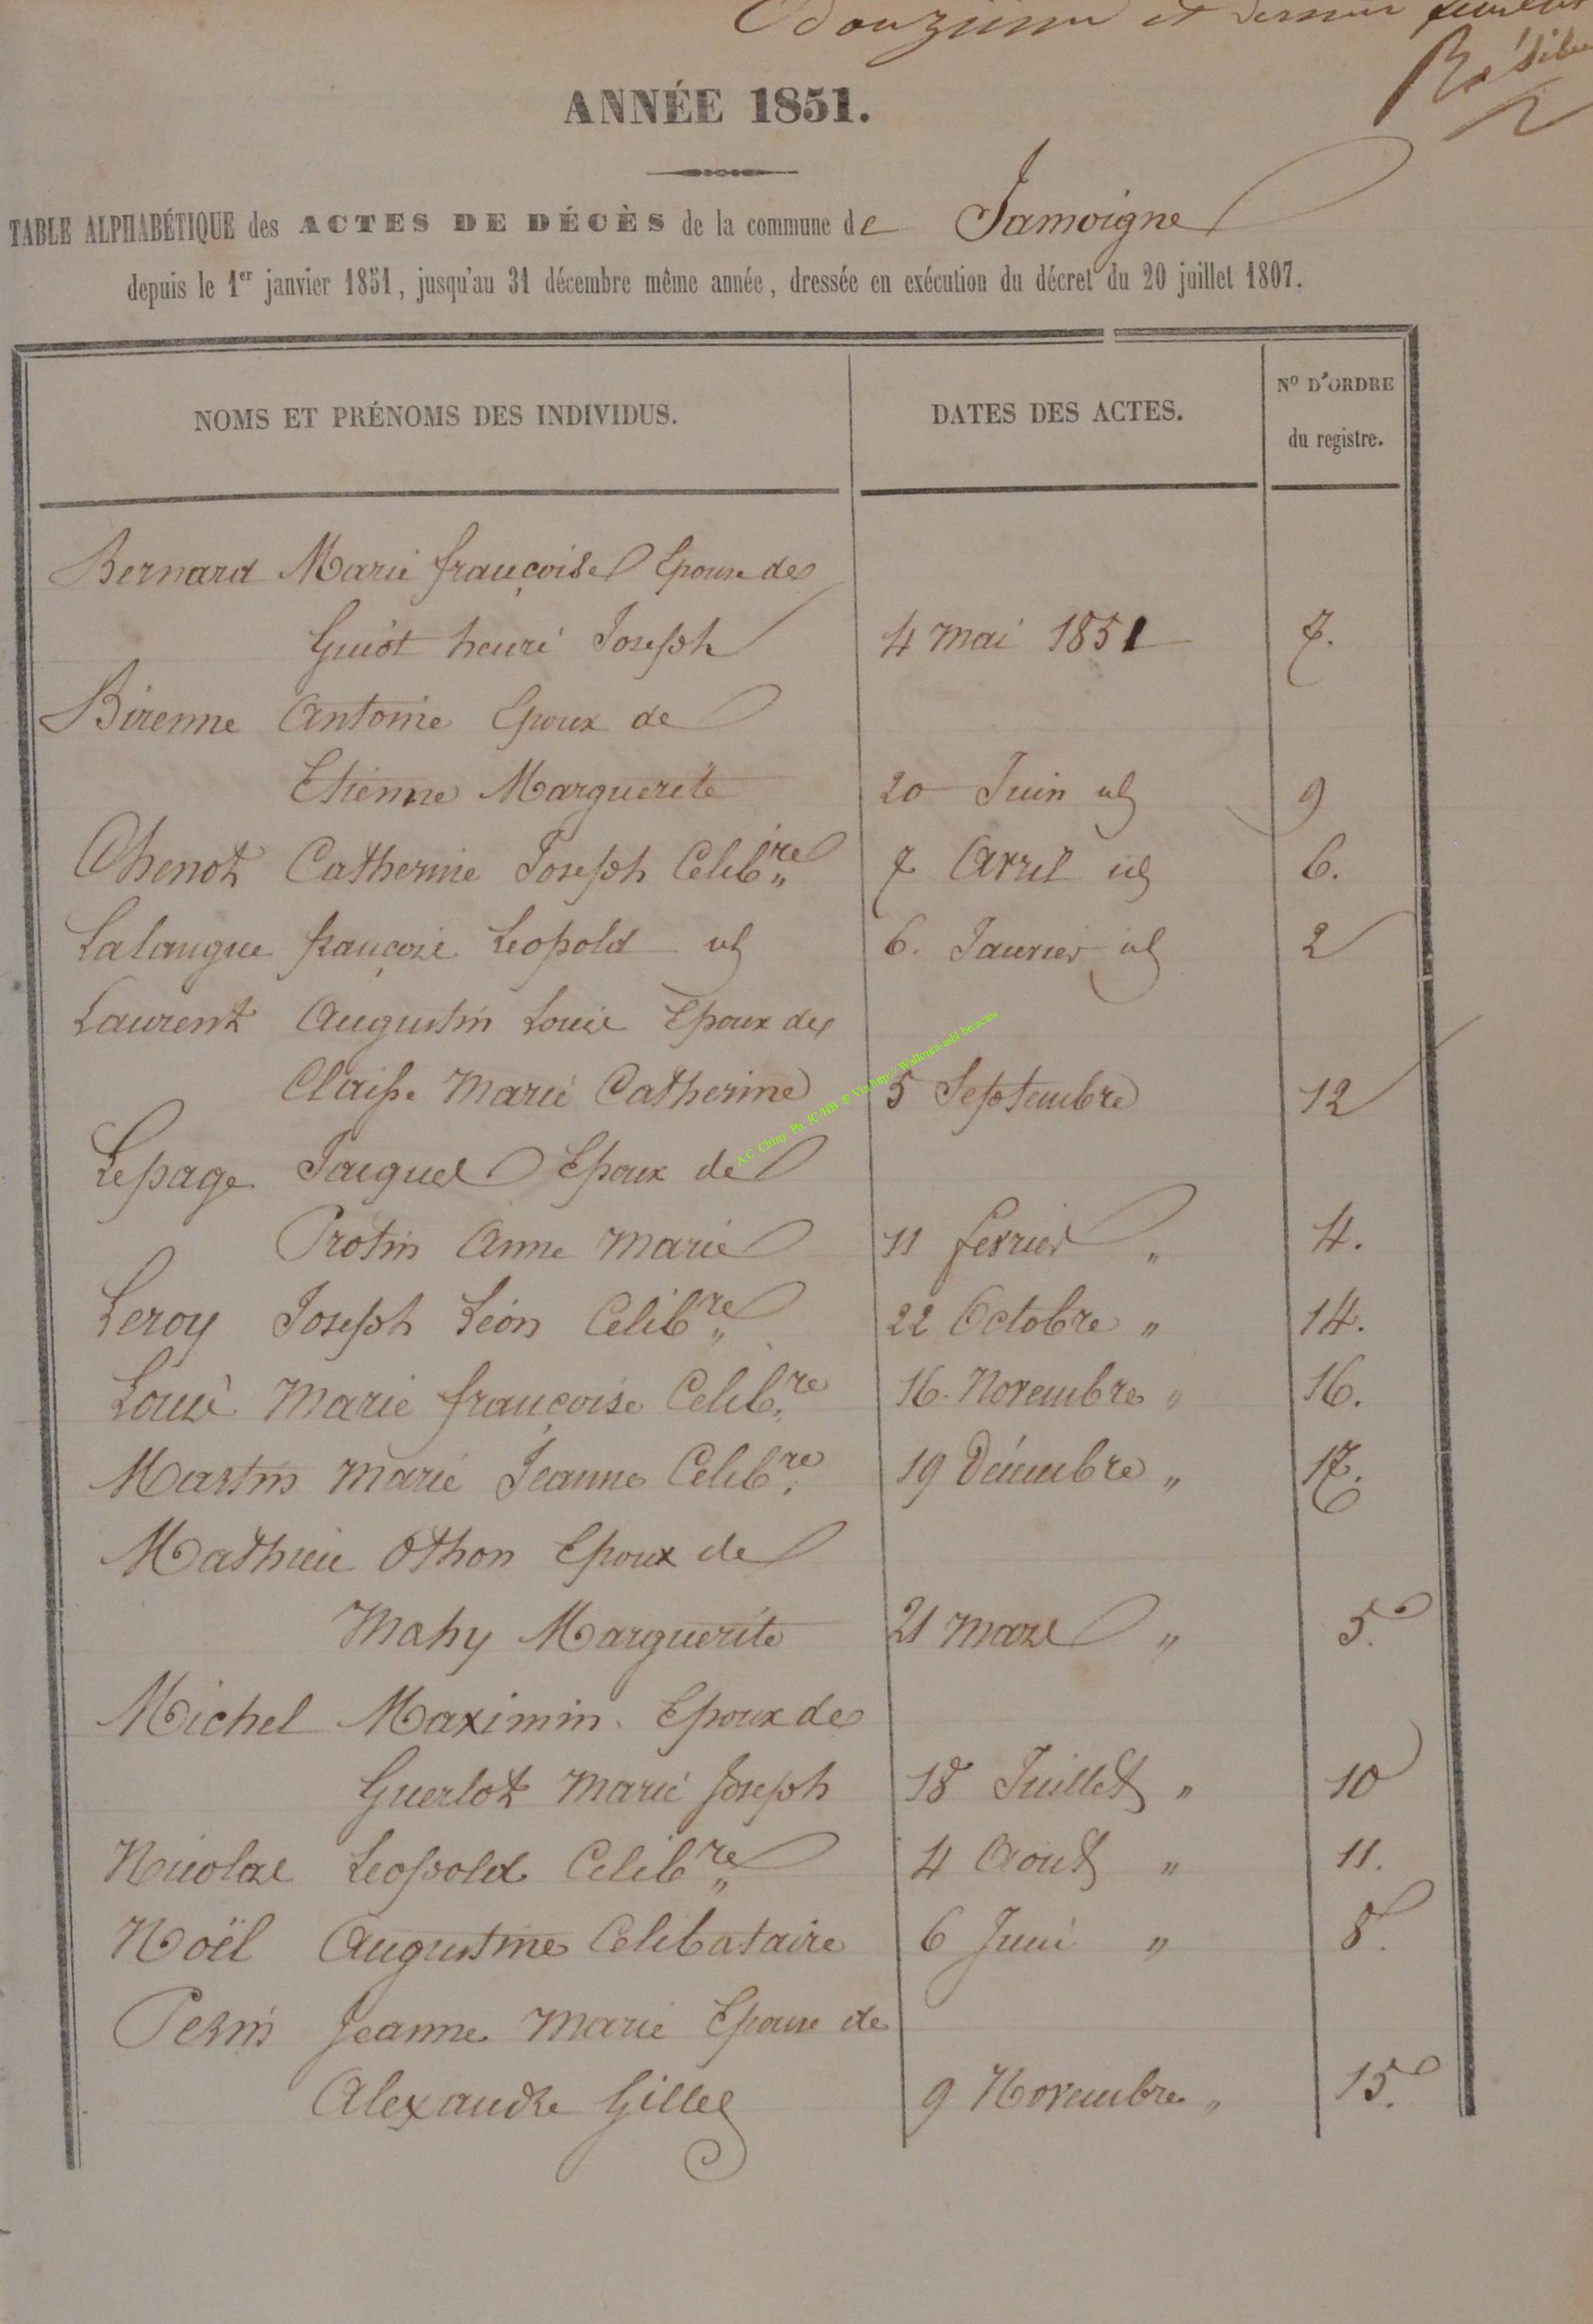 Douzieme et dernier feuillet
ANNÉE 1851.
TABLE ALPHABÉTIQUE des ACTES DE DÉCÈS de la commune de Jamoigne
depuis le 1er janvier 1851, jusqu'au 31 décembre même année, dressée en exécution du décret du 20 juillet 1807.
NOMS ET PRÉNOMS DES INDIVIDUS. DATES DES ACTES. No D'ORDRE
du registre.
Bernard Marie françoise Epouse de
Guiot henri Joseph 4 mai 1851 7.
Birenne Antoine Epoux de
Etienne Marguerite 20 Juin id 9
Chenot Catherine Joseph Celibre 7 Avril id 6.
Lalangue françois Leopold id 6. Janvier id 2
Laurent Augustin Louis Epoux de
Claisse Marie Catherine 5 Septembre 12
A.C. Chiny Ph. JC/HB & Via http://Wallonia-asbl.be/actes
Lepage Jacques Epoux de
Protin Anne marie 11 fevrier " 4.
Leroy Joseph Léon Celibre 22 Octobre " 14.
Louis Marie françoise Celibre 16. Novembre " 16.
Martin Marie Jeanne Celibre 19 Décembre " 17.
Mathieu Othon Epoux de
Mahy Marguerite 21 mars " 5.
Michel Maximin. Epoux de
Guerlot Marie Joseph 18 Juillet " 10
Nicolas Leopold Celibre 4 Aout " 11.
Noël Augustine Celibataire 6 Juin " 8.
Perin Jeanne Marie Epouse de
Alexandre Gilles 9 Novembre " 15.